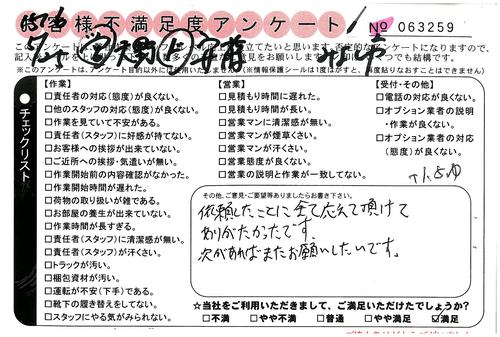 お客様不満足度アンケート
No 063259
このアンケートは、
記入
※このアンケートは、アンケート目的以外には使用いたしません。(※情報保護シールは1度はがすと、再度貼りなおすことはできません)
チェックリスト
【作業】
□責任者の対応(態度)が良くない。
□他のスタッフの対応(態度)が良くない。
□作業を見ていて不安がある。
□責任者(スタッフ)に好感が持てない。
□お客様への挨拶が出来ていない。
□ご近所への挨拶・気遣いが無い。
□作業開始前の内容確認がなかった。
□作業開始時間が遅れた。
□荷物の取り扱いが雑である。
□お部屋の養生が出来ていない。
□作業時間が長すぎる。
□責任者(スタッフ)に清潔感が無い。
□責任者(スタッフ)が汗くさい。
□トラックが汚い。
□梱包資材が汚い。
□運転が不安(下手)である。
□靴下の履き替えをしてない。
□スタッフにやる気がみられない。
【営業】
□見積もり時間に遅れた。
□見積もり時間が長い。
□営業マンに清潔感が無い。
□営業マンが煙草くさい。
□営業マンが汗くさい。
□営業態度が良くない。
□営業の説明と作業が一致してない。
【受付・その他】
□電話の対応が良くない。
□オプション業者の説明
・作業が良くない。
□オプション業者の対応
(態度)が良くない。
その他、ご意見・ご要望等ありましたらお書き下さい。
依頼したことに全て応えて頂けて
ありがたかったです。
次があればまたお願いしたいです。
☆当社をご利用いただきまして、ご満足いただけたでしょうか?
□不満 □やや不満 □普通 □やや満足 ☑満足